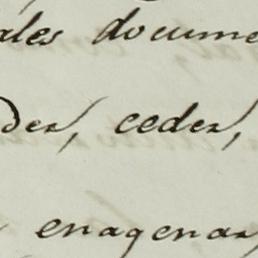 ales docume
der, ceder,
enagenar